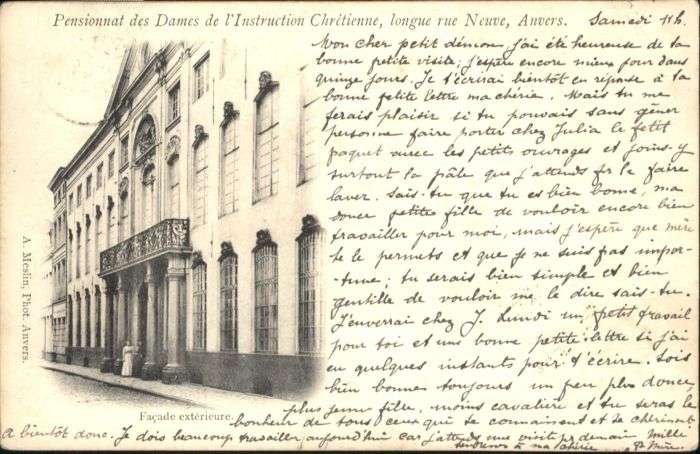 Pensionnat des Dames de l'Instruction Chrétienne, longue rue Neuve, Anvers.
Samedi 11 h.
Mon cher petit démon j'ai été heureuse de ta
bonne petite visite; j'espère encore mieux pour dans
quinze jours. Je t'écrirai bientôt en réponse à ta
bonne petite lettre ma chérie. Mais tu me
ferais plaisir si tu pouvais sans gêner
personne faire porter chez Julia le petit
paquet avec les petits ouvrages et joins-y
surtout la pâte que j'attends pr le faire
laver. Sais-tu que tu es bien bonne, ma
douce petite fille de vouloir encore bien
travailler pour moi, mais j'espère que mère
te le permets et que je ne suis pas impor-
tune; tu serais bien simple et bien
gentille de vouloir me le dire sais-tu.
J'enverrai chez J. Lundi un petit travail
pour toi et une bonne petite lettre si j'ai
eu quelques instants pour t'écrire. Sois
bien bonne toujours un peu plus douce
plus jeune fille, moins cavalière et tu seras le
bonheur de tous ceux qui te connaissent et te chérissent
A bientôt donc. Je dois beaucoup travailler aujourd'hui car j'attends une visite pr demain Mille
tendresses à ma chérie
A. Meslin, Phot. Anvers.
Façade extérieure.